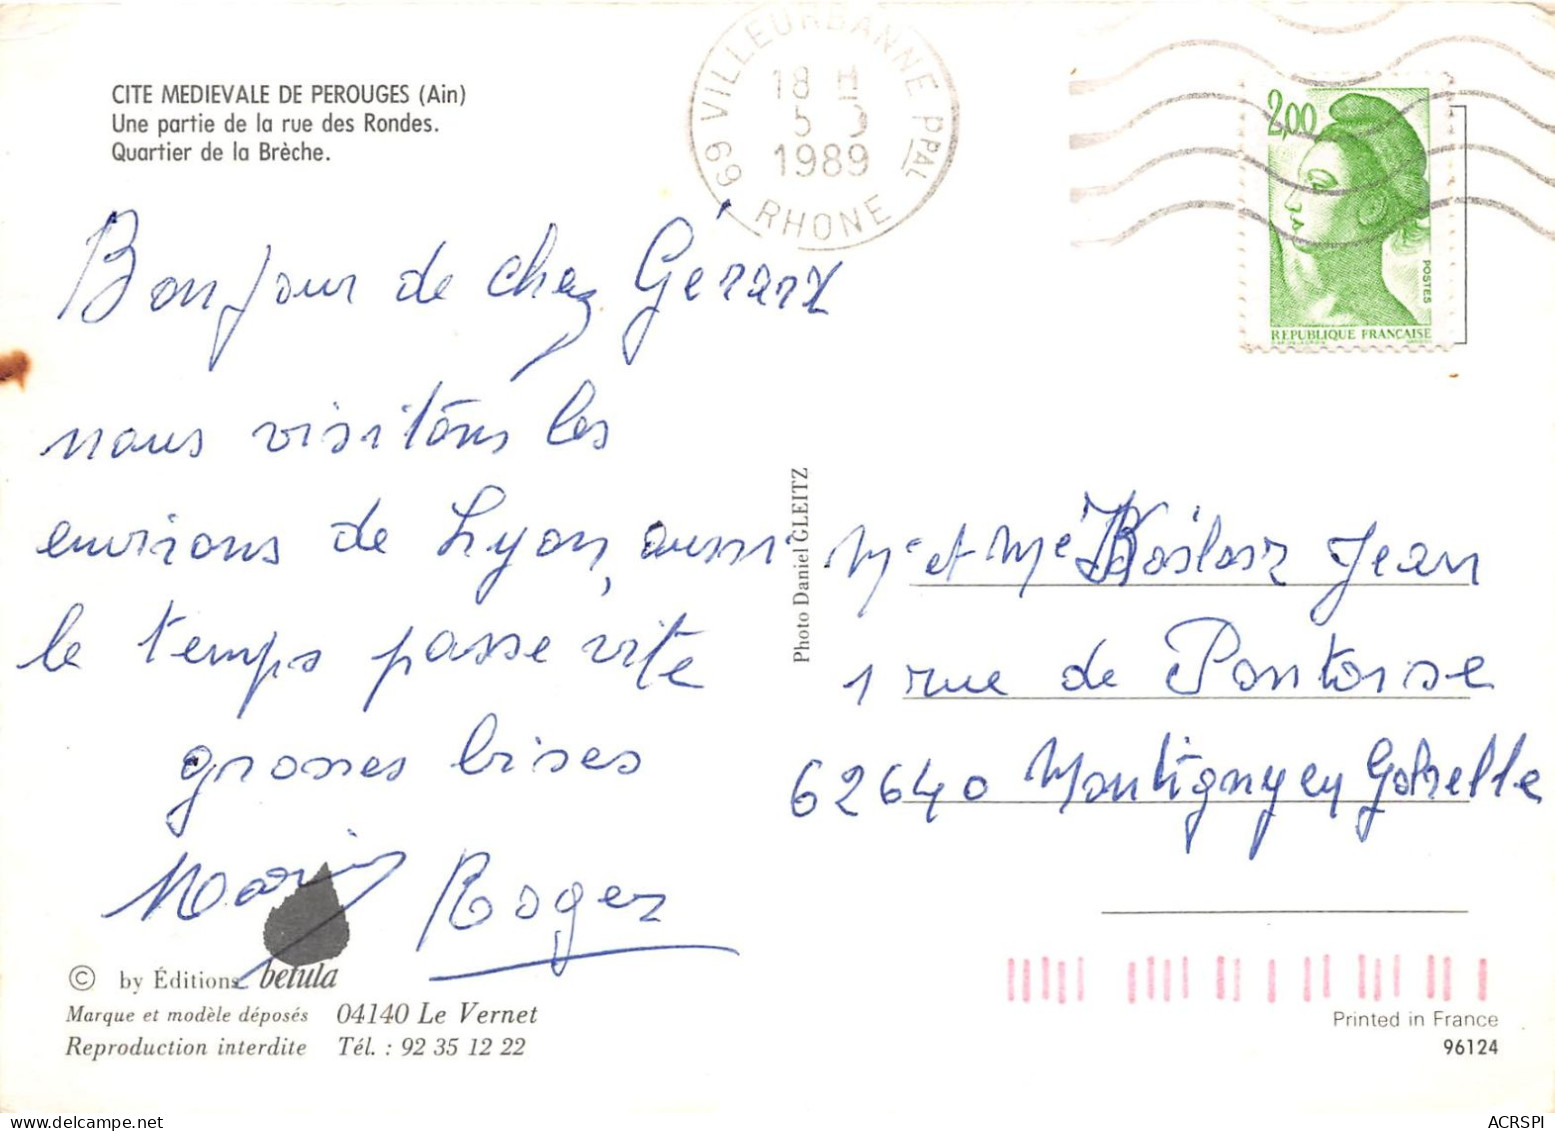 CITE MEDIEVALE DE PEROUGES (Ain)
Une partie de la rue des Rondes.
Quartier de la Brèche.
69 VILLEURBANNE PPAL
18 H
5
1989
RHONE
2,00
POSTES
REPUBLIQUE FRANÇAISE
Bonjour de chez Gérard
nous visitons les
environs de Lyon, aussi
le temps passe vite
grosses bises
Roger
Photo Daniel GLEITZ
Mr et Me Jean
1 rue de Pontoise
62640 Montigny en Gohelle
© by Éditions betula
Marque et modèle déposés 04140 Le Vernet
Reproduction interdite Tél. : 92 35 12 22
Printed in France
96124
ACRSPI